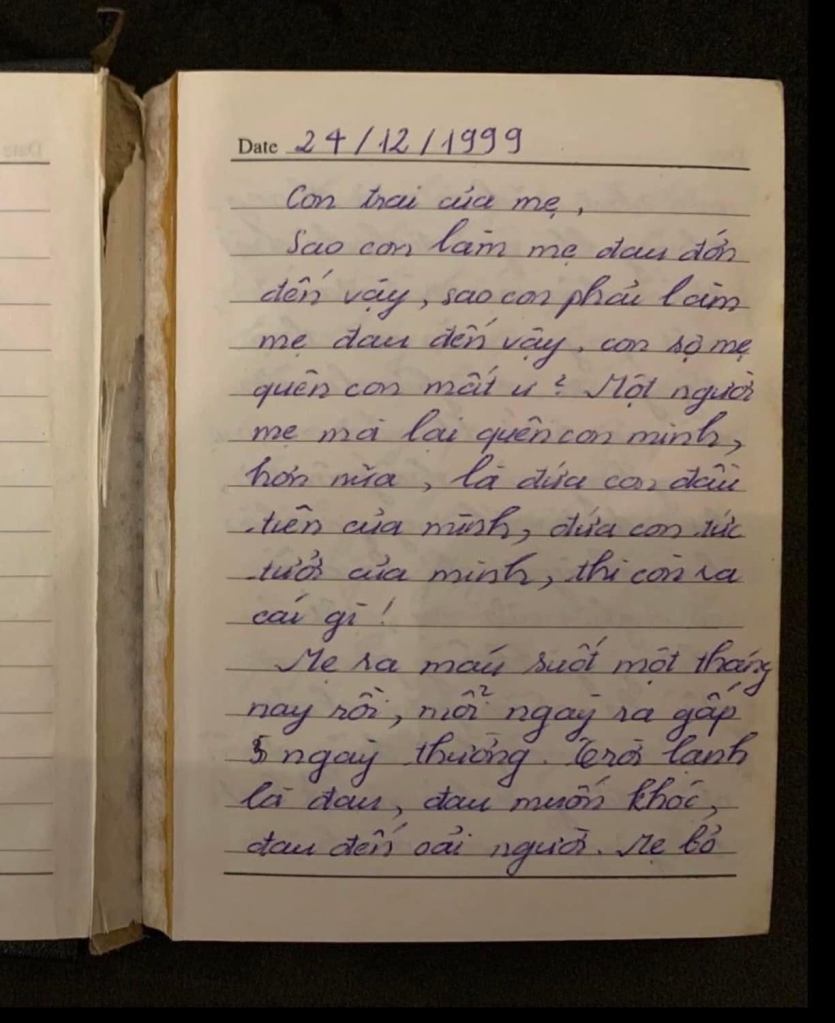 Date 24/12/1999
Con trai của mẹ,
Sao con làm mẹ đau đớn
đến vậy, sao con phải làm
mẹ đau đến vậy, con sợ mẹ
quên con mất ư? Một người
mẹ mà lại quên con mình,
hơn nữa, là đứa con đầu
tiên của mình, đứa con rức
rưởi của mình, thì còn ra
cái gì!
Mẹ ra máu suốt một tháng
nay rồi, mỗi ngày ra gấp
5 ngày thường. Trời lạnh
là đau, đau muốn khóc,
đau đến oải người. Mẹ bỏ